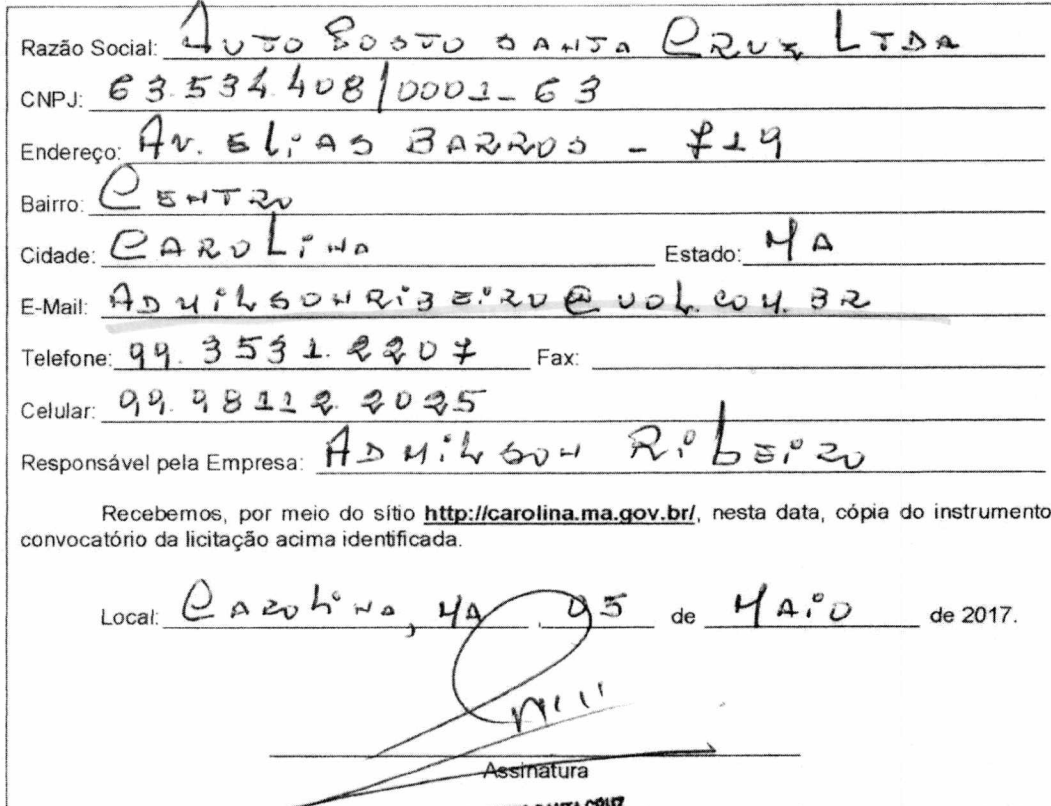 Razão Social: AUTO POSTO SANTA CRUZ LTDA
CNPJ: 63.534.408/0001-63
Endereço: AV. ELIAS BARROS - 719
Bairro: CENTRO
Cidade: CAROLINA Estado: MA
E-Mail: ADMILSONRIBEIRO@UOL.COM.BR
Telefone: 99.3531.2207 Fax:
Celular: 99.98112.2025
Responsável pela Empresa: ADMILSON RIBEIRO
Recebemos, por meio do sítio http://carolina.ma.gov.br/, nesta data, cópia do instrumento
convocatório da licitação acima identificada.
Local: CAROLINA, MA, 05 de MAIO de 2017.
Assinatura
SANTA CRUZ